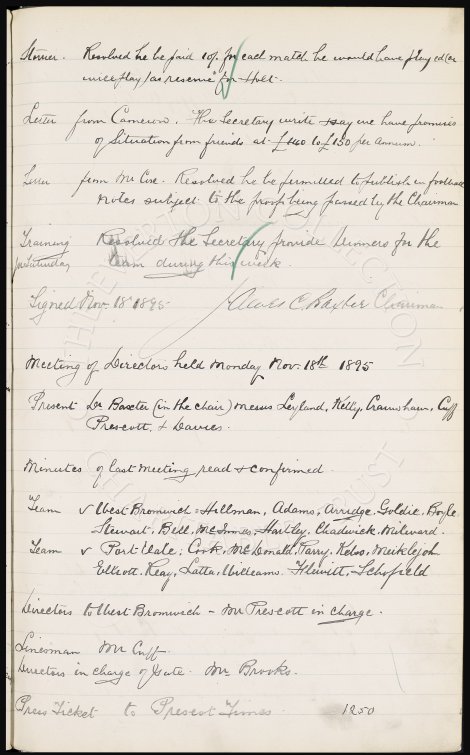 Storrier. Resolved he be paid 10/- for each match he would have played (or
twice play) as reserve for Holt.
Letter from Cameron. The Secretary write & say we have promises
of Situation from friends at £140 to £150 per annum.
Letter from Mr Coe. Resolved he be permitted to publish in football
notes subject to the proof being passed by the Chairman
Training Resolved the Secretary provide dinners for the
for Saturday team during this week
Signed Nov. 18 1895 James C. Baxter Chairman
Meeting of Directors held Monday Nov. 18th 1895
Present Dr Baxter (in the chair) Messrs Leyland, Kelly, Crawshaw, Cuff
Prescott, & Davies.
Minutes of last meeting read & confirmed.
Team v West Bromwich = Hillman, Adams, Arridge, Goldie, Boyle
Stewart, Bell, McInnes, Hartley, Chadwick, Milward.
Team v Port Vale; Cook, McDonald, Parry, Kelso, Meiklejoh
Elliott, Reay, Latta, Williams. Hewitt, Schofield
Directors to West Bromwich - Mr Prescott in charge.
Linesman Mr Cuff
Directors in charge of Gate. Mr Brooks.
Press Ticket to Prescot Times 1250